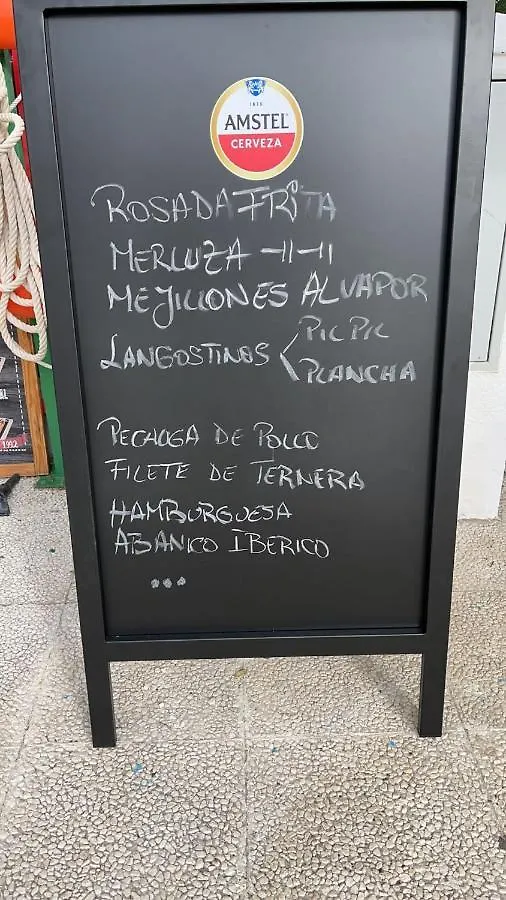 1870
AMSTEL
CERVEZA
ROSADA FRITA
MERLUZA -11-11
MEJILLONES AL VAPOR
LANGOSTINOS < PIL PIL
PLANCHA
PECHOGA DE POLLO
FILETE DE TERNERA
HAMBURGUESA
ABANICO IBERICO
...
1992